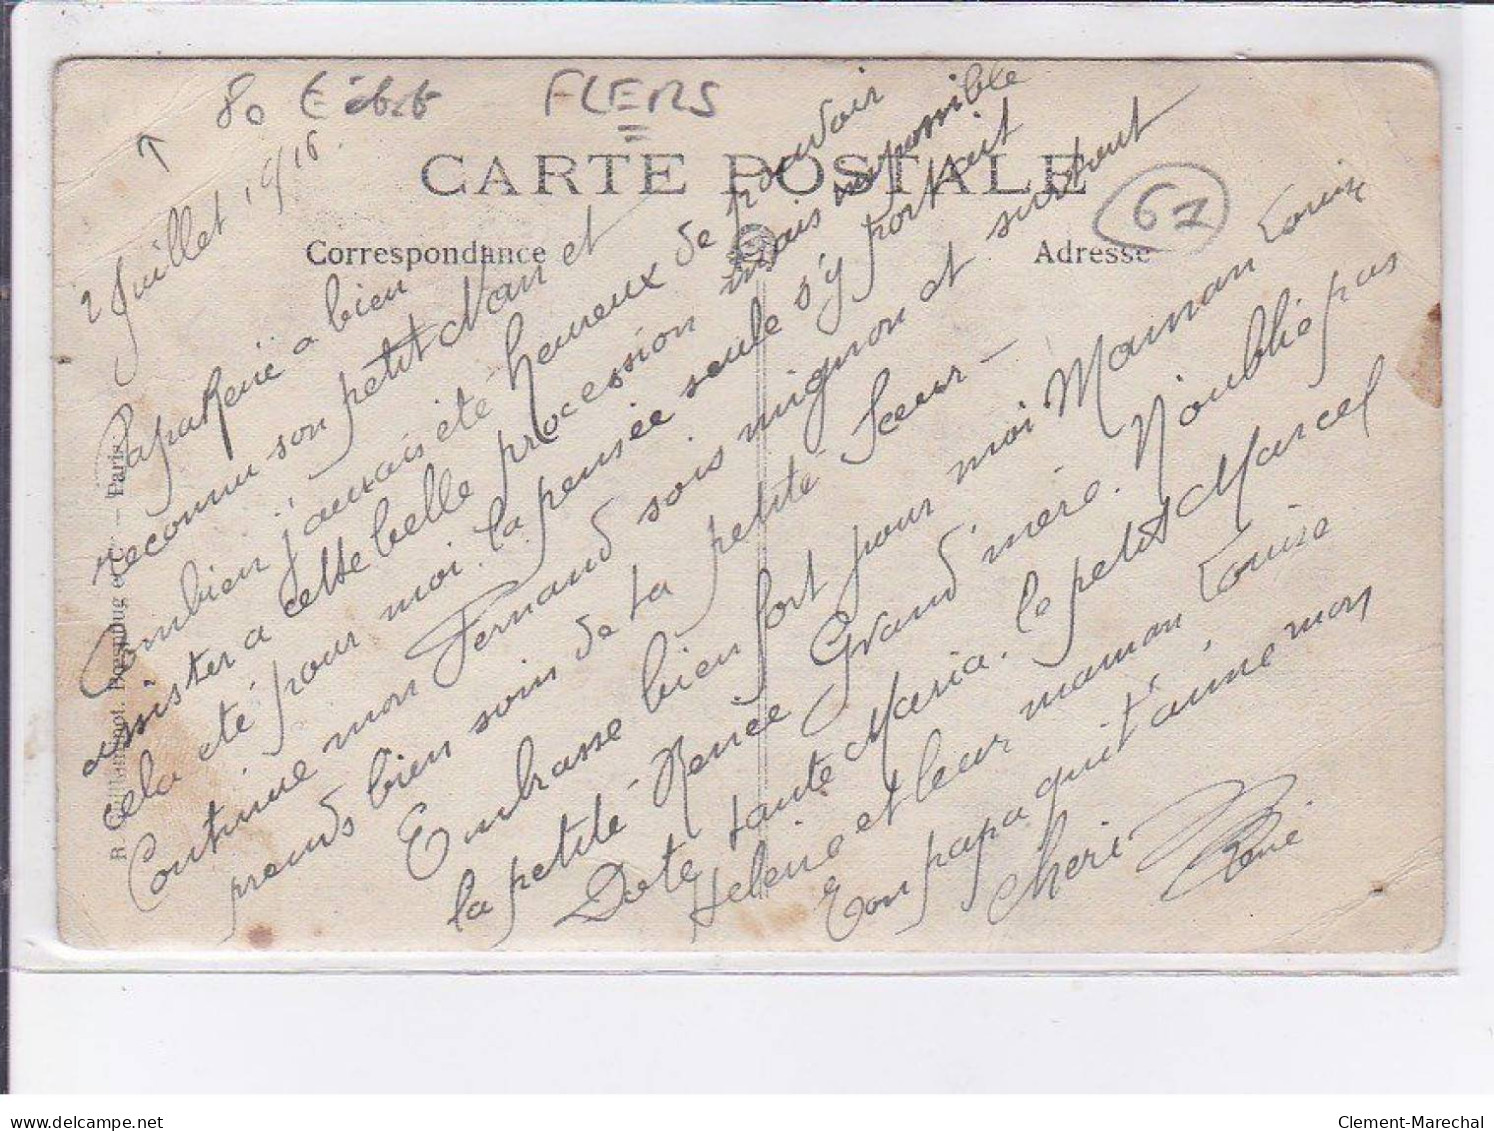 80 FLERS
CARTE POSTALE
Correspondance
Adresse
67
2 Juillet 1916.
Papa René a bien
reconnu son petit Nan et
Combien j'aurais été heureux de pouvoir
assister a cette belle procession mais impossible
cela été pour moi. la pensée seule s'y portait
Continue mon Fernand sois mignon et surtout
prends bien soin de ta petite Sœur -
Embrasse bien fort pour moi Maman Louise
la petite Renée Grand'mère. N'oublie pas
tante Maria. le petit Marcel
Helene et leur maman Louise
Ton papa qui t'aime mon
cheri
René
- Paris
delcampe.net
Clement-Marechal